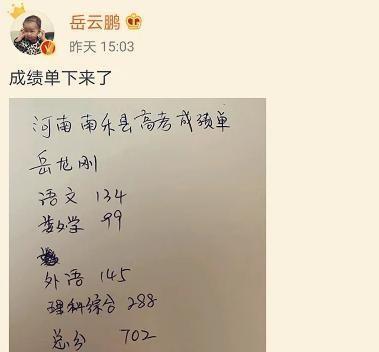 岳云鹏
昨天 15:03
成绩单下来了
河南南乐县高考成绩单
岳龙刚
语文 134
数学 99
外语 145
理科综合 288
总分 702